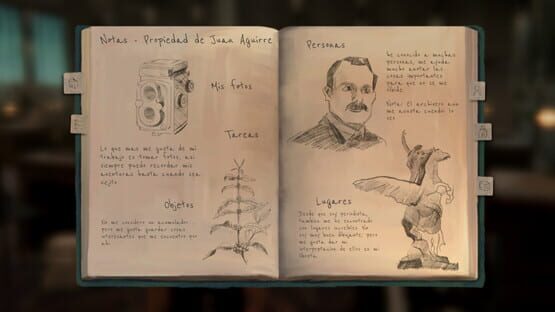 Notas - Propiedad de Juan Aguirre
Mis fotos
Tareas
Lo que mas me gusta de mi
trabajo es tomar fotos, asi
siempre puedo recordar mis
aventuras hasta cuando sea
viejito
Objetos
No me considero un acumulador
pero me gusta guardar cosas
interesantes que me encuentro por
ahi
Personas
he conocido a muchas
personas, me ayuda
mucho anotar las
cosas importantes
para que no se me
olvide
Nota: El archivero aun
me asusta cuando lo
veo
Lugares
Desde que soy periodista,
tambien me he encontrado
con lugares increibles. No
soy muy buen dibujante, pero
me gusta dar mi
interpretacion de ellos en mi
libreta.